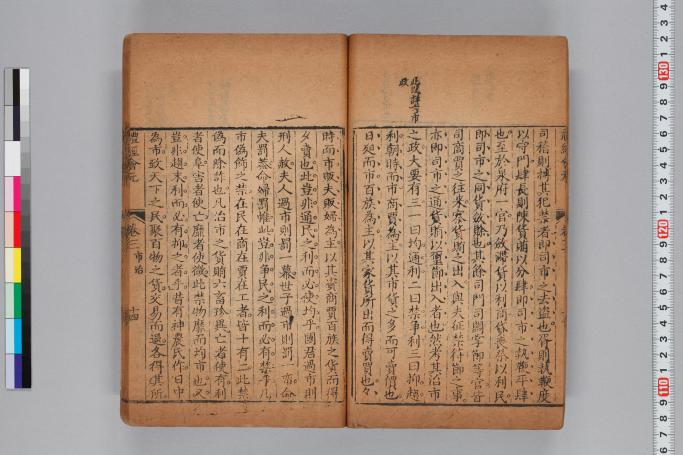 司稽則搏其犯禁者即司市之去盜也胥則執鞭度
以守門肆長則陳貨賄以分肆即司市之執鞭平肆
也至於泉府一官乃斂滯貨以利商貸喪祭以利民
即司市之同貨斂賒也其餘司門司關掌節等官皆
司商賈之往來察貨賄之出入與夫征禁符節之事
亦即司市之通貨賄以璽節出入者也然考其治市
之政大要有三一曰均通利二曰禁爭利三曰抑趨
利朝時而市商賈為主以其市貨之多而可賣價也
日昃而市百族為主以其家貨所出而得賣買也
此段詳言市
政
時而市販夫販婦為主以其資商賈百族之貨而得
夕賣也此豈非通民之利而必使均乎國君過市則
刑人赦夫人過市則罰一幕世子過市則罰一帟命
夫罰蓋命婦罰帷此豈非爭民之利而必有禁乎凡
市偽飾之禁在民在商在賈在工者皆十有二此禁
偽而除詐也凡治市之貨賄六畜珍異亡者使有利
者使阜害者使亡靡者使微此禁物靡而均市也又
豈非趨末利而必有抑之者乎昔有神農氏作日中
為市致天下之民聚百物之貨交易而退各得其所
禮經會元
卷三
市治
十四
130
120
110